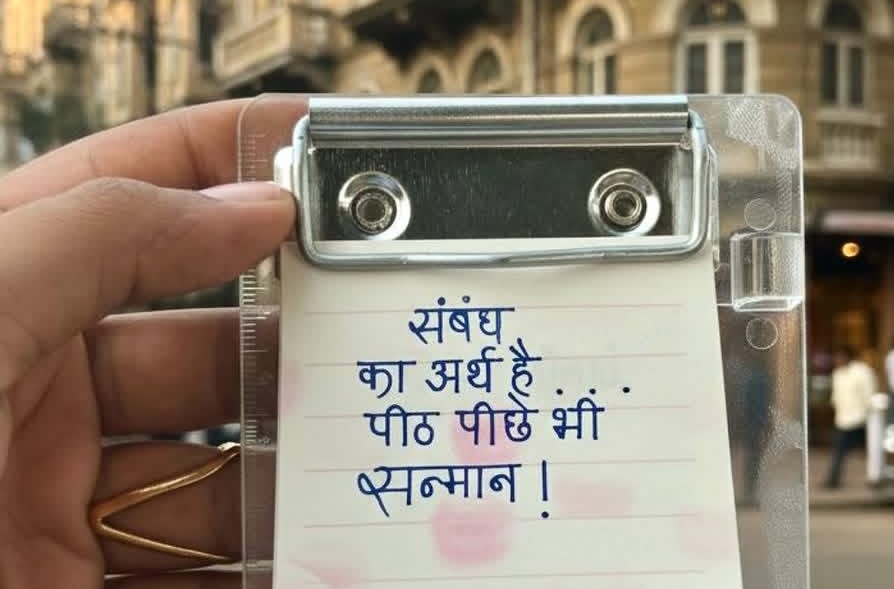 संबंध
का अर्थ है...
पीठ पीछे भी
सन्मान !